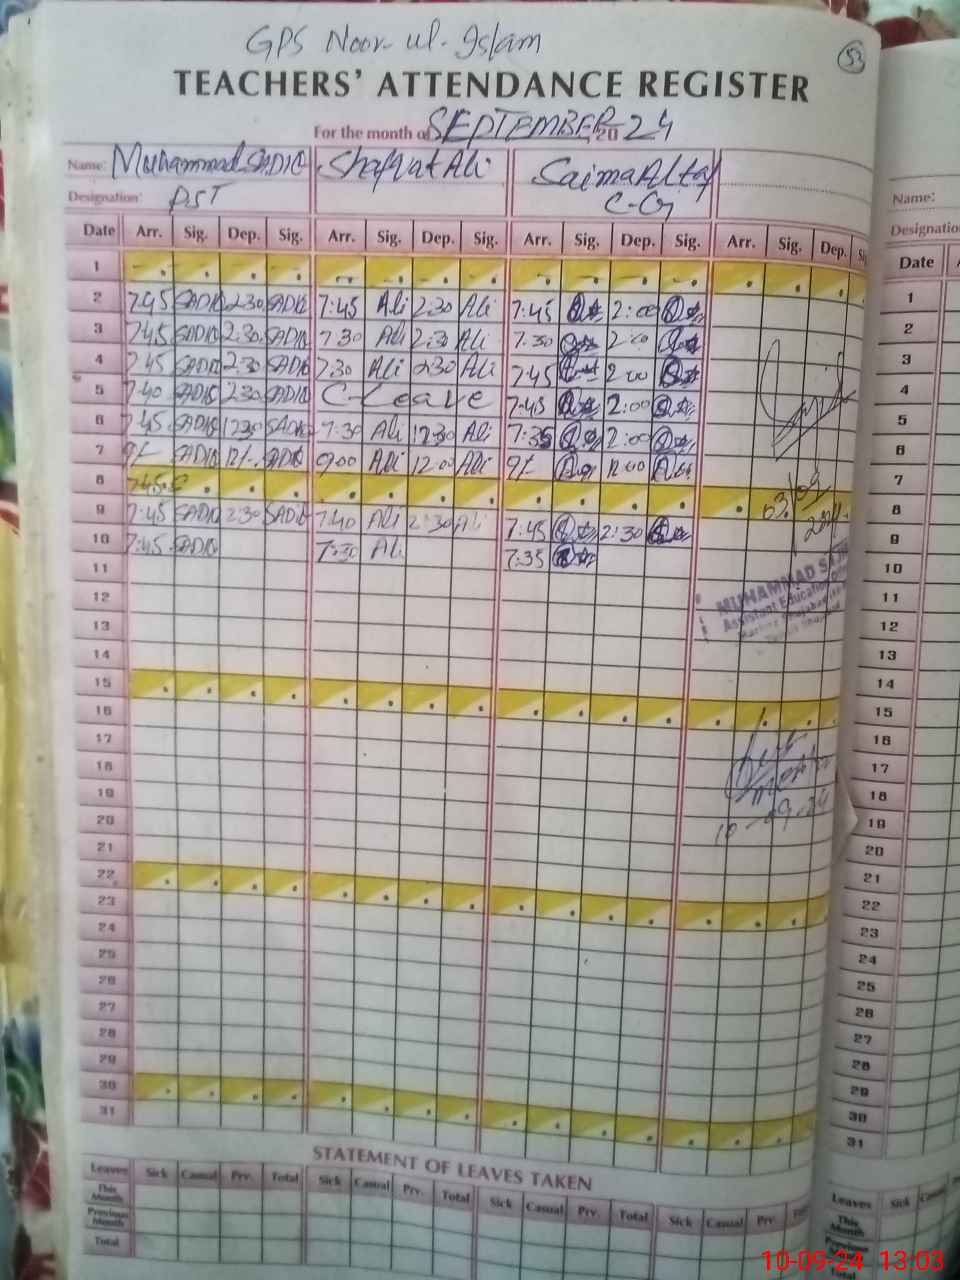 53
GPS Noor-ul-Islam
TEACHERS' ATTENDANCE REGISTER
For the month of SEPTEMBER 2024
Name: Muhammad SADIQ Shafqat Ali Saima Altaf
Designation: PST C-G
Date Arr. Sig. Dep. Sig. Arr. Sig. Dep. Sig. Arr. Sig. Dep. Sig. Arr. Sig. Dep.
1
2 745 SADIQ 2.30 SADIQ 7:45 Ali 2:30 Ali 7:45 2:00
3 745 SADIQ 2.30 SADIQ 7 30 Ali 2:30 Ali 7:30 2:00
4 745 SADIQ 2.30 SADIQ 7:30 Ali 2:30 Ali 7:45 2:00
5 7:40 SADIQ 2.30 SADIQ C-Leave 7:45 2:00
6 7:45 SADIQ 1230 SADIQ 7:30 Ali 12:30 Ali 7:35 2:00
7 9/- SADIQ 12/- SADIQ 9:00 Ali 12:00 Ali 9/- 12:00
8 7:45
9 7:45 SADIQ 2:30 SADIQ 7:40 Ali 2:30 Ali 7:45 2:30
10 7:45 SADIQ 7:30 Ali 7:35
11
12
13
14
15
16
17
18
19
20
21
22
23
24
25
26
27
28
29
30
31
03/09
MUHAMMAD
Assistant Education
10-09-24
STATEMENT OF LEAVES TAKEN
Leaves Sick Casual Prv. Total Sick Casual Prv. Total Sick Casual Prv. Total Sick Casual Prv.
This Month
Previous Month
Total
Name:
Date
1
2
3
4
5
6
7
8
9
10
11
12
13
14
15
16
17
18
19
20
21
22
23
24
25
26
27
28
29
30
31
Leaves Sick
This Month
Previous
Total
10-09-24 13:03